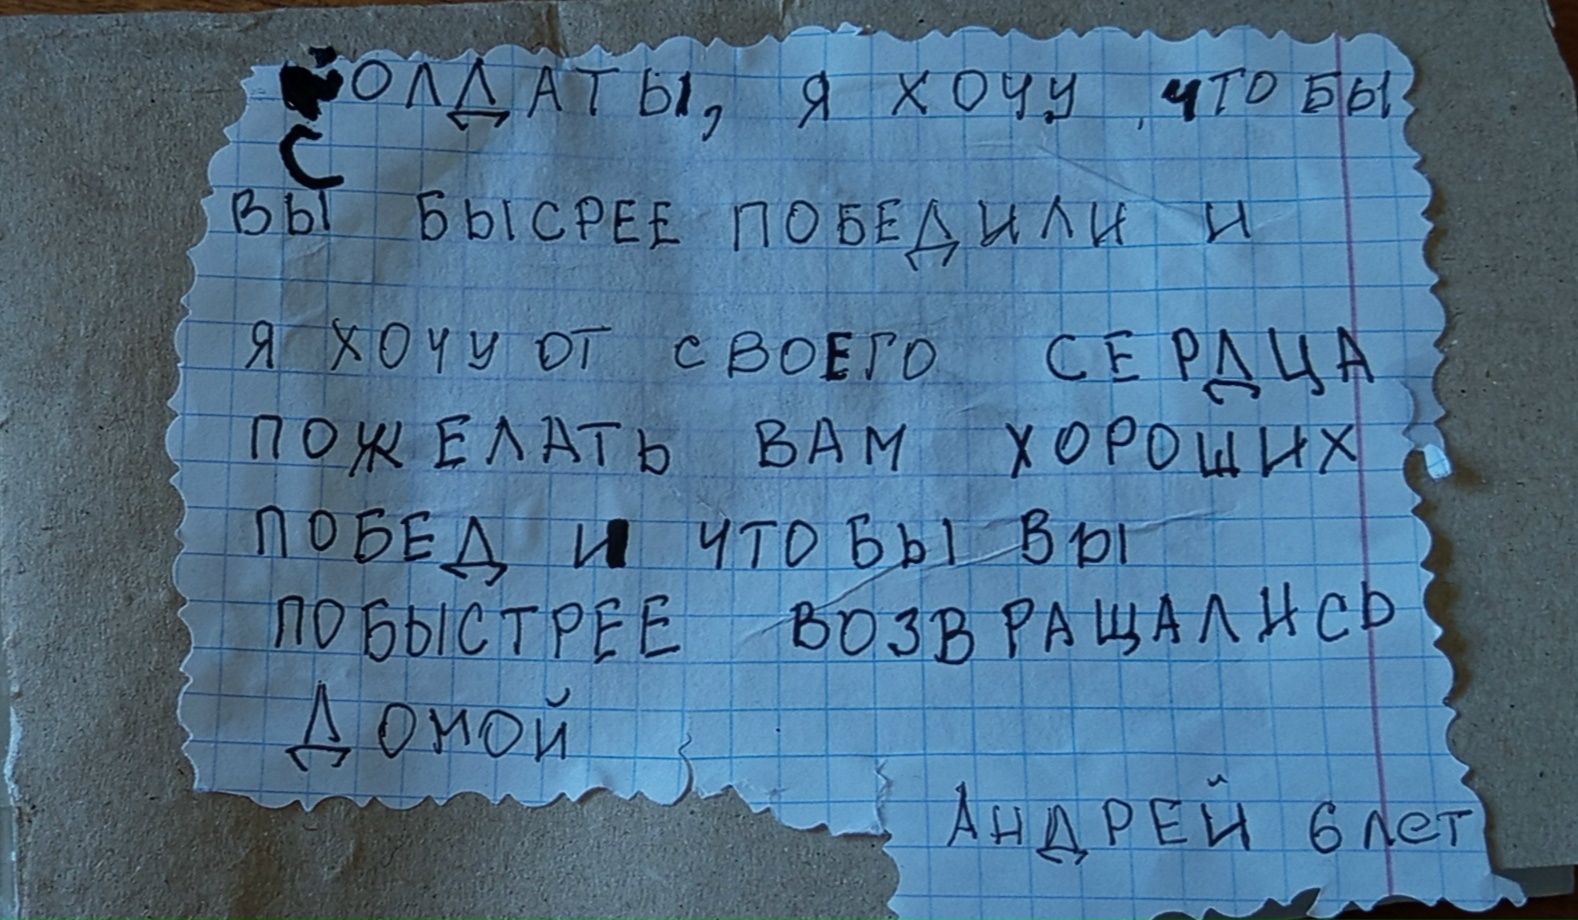 СОЛДАТЫ, Я ХОЧУ ЧТО БЫ
ВЫ БЫСРЕЕ ПОБЕДИЛИ И
Я ХОЧУ ОТ СВОЕГО СЕРДЦА
ПОЖЕЛАТЬ ВАМ ХОРОШИХ
ПОБЕД И ЧТО БЫ ВЫ
ПОБЫСТРЕЕ ВОЗВРАЩАЛИСЬ
ДОМОЙ
АНДРЕЙ 6 лет